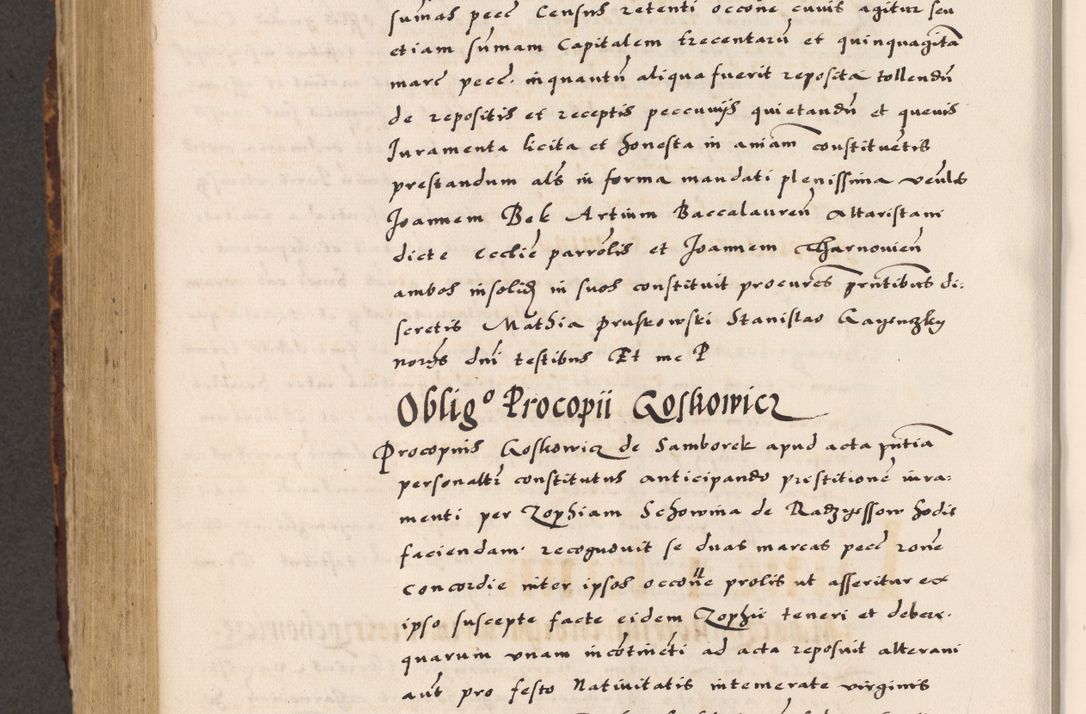 sumas pecc Census retenti occone cuius agitur seu
etiam sumam Capitalem trecentaru et quinquagita
marc pecc. inquantu aliqua fuerit reposita tollendu
de repositis et receptis peccuniis quietandu et quevis
Iuramenta licita et honesta in aniam constituetis
prestandum als in forma mandati plenissima venlis
Joannem Bek Artium Baccalaureu Altaristam
dicte Ecclie parrolis et Joannem Tharnovien
ambos insolid in suos constituit procures pntibus di:
scretis Mathia Pruskowski Stanislao
nors dni testibus Et me P
Oblig⁰ Procopii Goskowicz
Procopius Goskowicz de Samborek apud acta pntia
personaltr constitutus anticipando prestitione iura:
menti per Zophiam Schowina de hodie
faciendam recognovit se duas marcas pecc rone
concordie inter ipsos occone prolis ut asseritur ex
ipso suscepte facte eidem Zophie teneri et debere.
quarum unam incotineti ad acta reposuit alteram
aut pro festo Nativitatis intemerate virginis